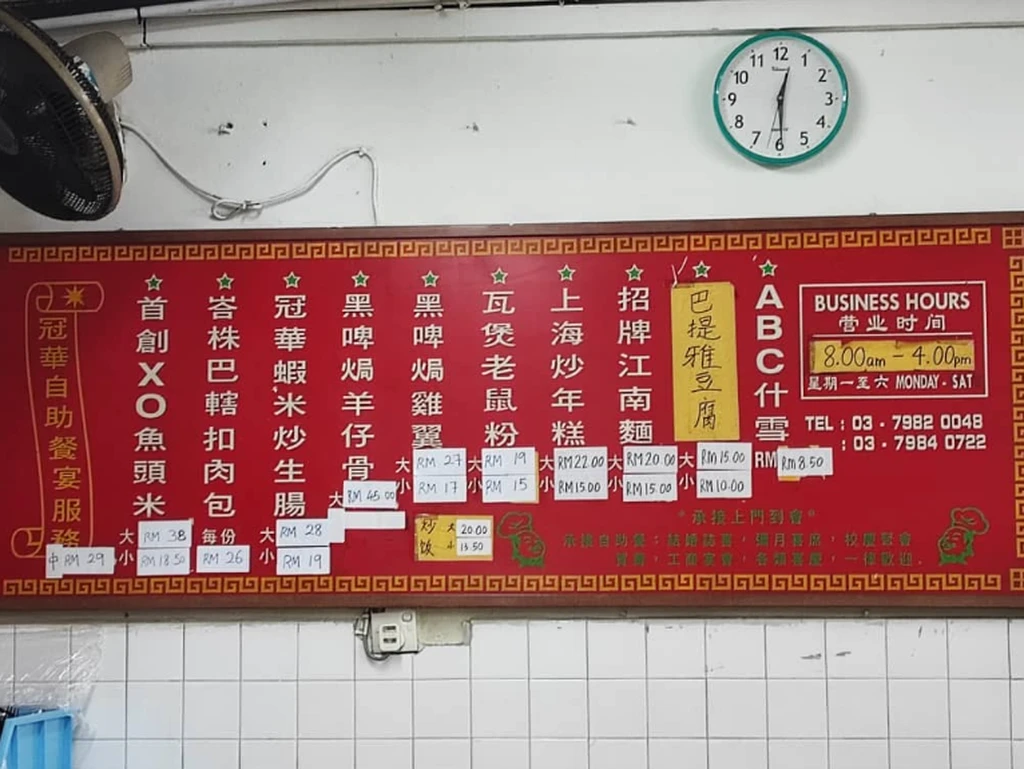 12
11
1
10
2
9
3
8
4
7
5
6
冠華自助餐宴服務
首創XO魚頭米
大 RM 38
中 RM 29
小 RM 18.50
峇株巴轄扣肉包
每份
RM 26
冠華蝦米炒生腸
大 RM 28
小 RM 19
黑啤焗羊仔骨
大 RM 45.00
黑啤焗雞翼
大 RM 27
小 RM 17
炒饭 大 20.00
小 13.50
瓦煲老鼠粉
大 RM 19
小 RM 15
上海炒年糕
大 RM22.00
小 RM15.00
招牌江南麵
大 RM20.00
小 RM15.00
巴提雅豆腐
大 RM15.00
小 RM10.00
ABC什雪
RM RM8.50
BUSINESS HOURS
营业时间
8.00am - 4.00pm
星期一至六 MONDAY - SAT
TEL : 03 - 7982 0048
: 03 - 7984 0722
*承接上門到會*
承接自助餐，結婚誌喜，彌月喜席，校慶聚會
賀壽，工商宴會，各類喜慶，一律歡迎.